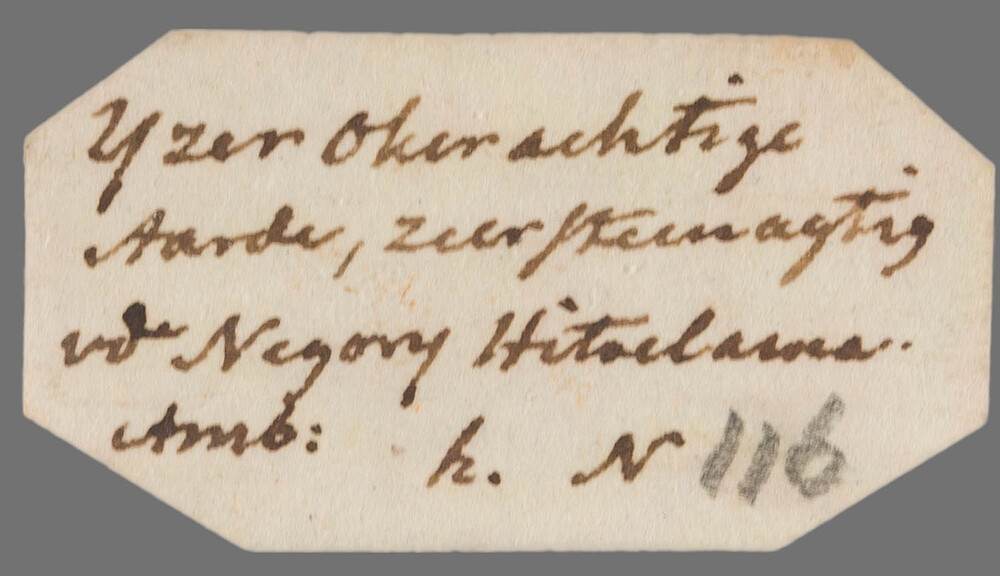 Yzer Oker achtige
Aarde, zeer steenagtig
vde Negory Hitoelama.
Amb: h. N 116